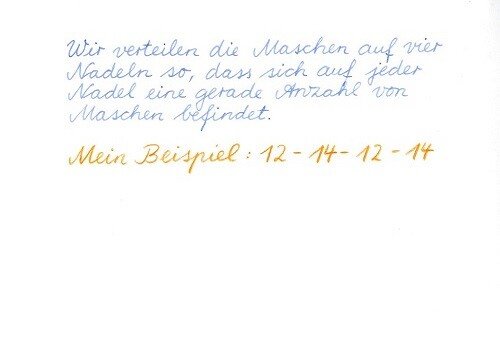 Wir verteilen die Maschen auf vier
Nadeln so, dass sich auf jeder
Nadel eine gerade Anzahl von
Maschen befindet.
Mein Beispiel: 12 - 14 - 12 - 14